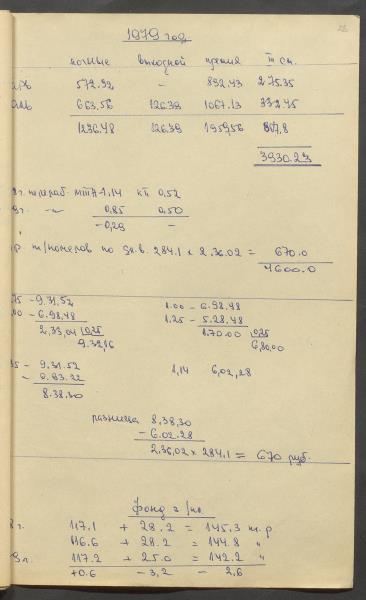 26
1979 год
ночные выходной премия III см.
572.92 - 892.43 275.35
663.56 126.39 1067.13 332.45
1236.48 126.39 1959,56 607,8
3930.23
1,14 кп 0,52
г. -"- 0,85 0,50
-0,29 -
т/номеров по дн.в. 284.1 х 2.36.02 = 670.0
4600.0
- 9.31.52 1.00 - 6.98.48
00 - 6.98.48 1.25 - 5.28.48
2.33,04 0,25 1.70.00 0,25
9.32,16 6,80,00
- 9.31.52 1,14 6,02,28
- 0.93.22
8.38.30
разница 8,38,30
- 6.02.28
2,36,02 х 284.1 = 670 руб.
фонд з/пл
г. 117.1 + 28.2 = 145.3 т.р
116.6 + 28.2 = 144.8 "
117.2 + 25.0 = 142.2 "
+0.6 - 3,2 - 2,6